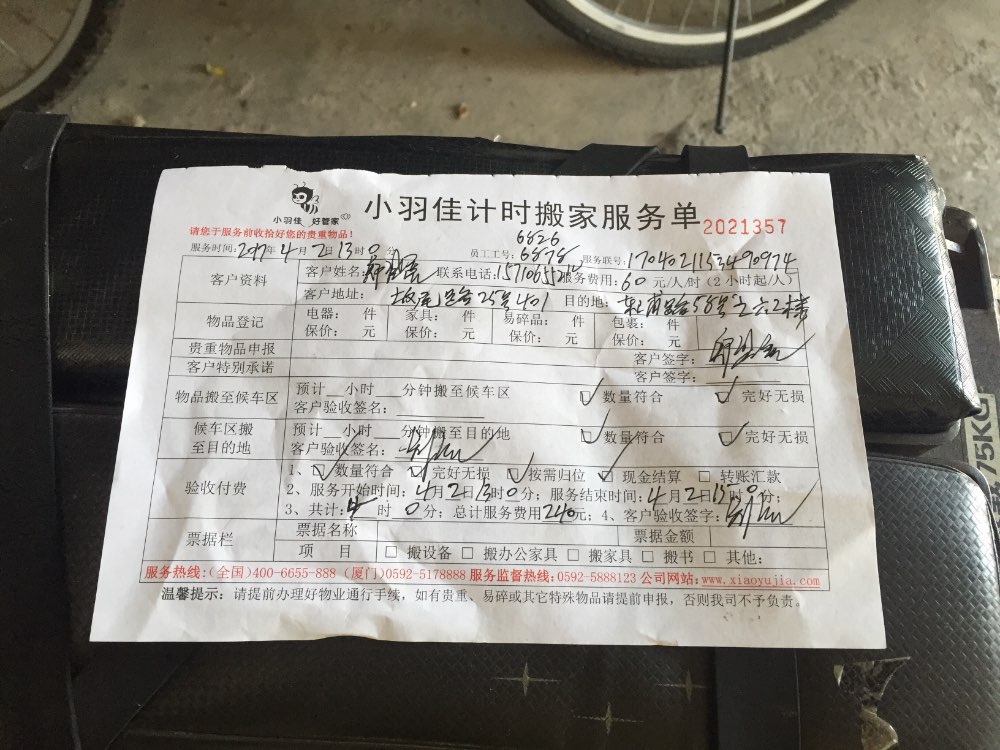 小羽佳 好管家
小羽佳计时搬家服务单 2021357
请您于服务前收拾好您的贵重物品！
6826
服务时间：2017年4月2日13时0分 员工工号：6878 服务联号：1704021153490974
客户资料 客户姓名： 联系电话： 服务费用：60元/人/时（2小时起/人）
客户地址： 25号401 目的地： 58号之六二楼
物品登记 电器： 件 家具： 件 易碎品： 件 包裹： 件
保价： 元 保价： 元 保价： 元 保价： 元
贵重物品申报 客户签字：
客户特别承诺 客户签字：
物品搬至候车区 预计__小时__分钟搬至候车区 数量符合 完好无损
客户验收签名：
候车区搬至目的地 预计__小时__分钟搬至目的地 数量符合 完好无损
客户验收签名：
验收付费 1、数量符合 完好无损 按需归位 现金结算 转账汇款
2、服务开始时间：4月2日13时0分；服务结束时间：4月2日15时0分；
3、共计：4时0分；总计服务费用240元；4、客户验收签字：
票据栏 票据名称 票据金额
项 目 搬设备 搬办公家具 搬家具 搬书 其他：
服务热线：（全国）400-6655-888（厦门）0592-5178888 服务监督热线：0592-5888123 公司网站：www.xiaoyujia.com
温馨提示：请提前办理好物业通行手续，如有贵重、易碎或其它特殊物品请提前申报，否则我司不予负责。
75KG